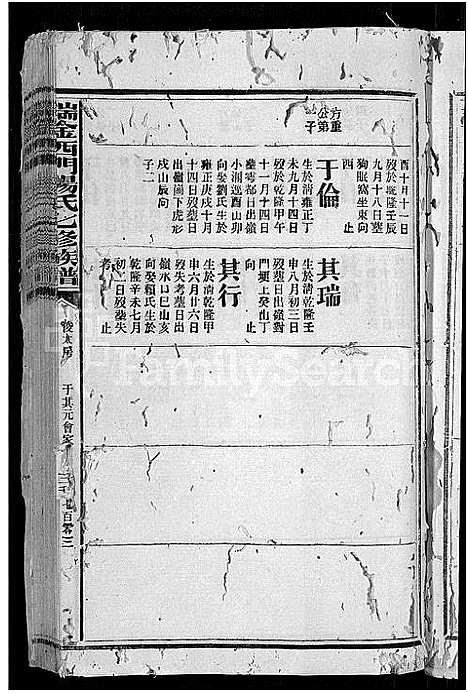 方重
公第
子
酉十月十一日
歿於乾隆壬辰
九月十八日塟
狗眠窩坐東向
西　止
于倫
生於清雍正丁
未九月十四日
歿於乾隆甲午
十一月十四日
塟雩都日出嶺
小湖逕酉山卯
向娶劉氏生於
雍正庚戌十月
十四日歿塟日
出嶺崗下虎形
戌山辰向
子二
其瑞
生於清乾隆壬
申八月初三日
歿塟日出嶺對
門埂上癸山丁
向　止
其行
生於清乾隆甲
申六月廿六日
歿失考塟日出
嶺水口巳山亥
向娶賴氏生於
乾隆辛未七月
初一日歿塟失
考　止
瑞金西門楊氏七修族譜
後太房
于其元會
七百零三
FamilySearch